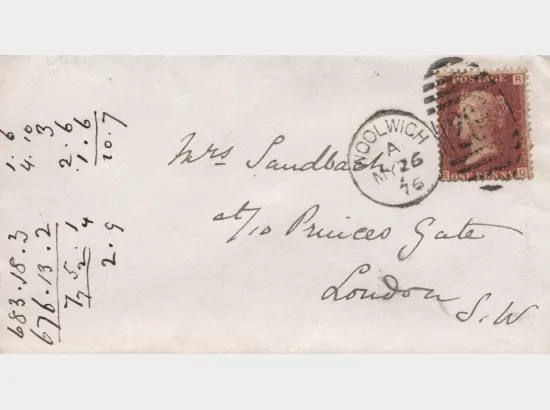 POSTAGE
ONE PENNY
WOOLWICH
A
MY 26
76
Mrs Sandbach
at/10 Princes Gate
London
S.W
1. 6
4. 10
3
2. 6
1. 6
10. 7
683. 18. 3
676. 13. 2
7. 5. 1
2. 4
2. 9